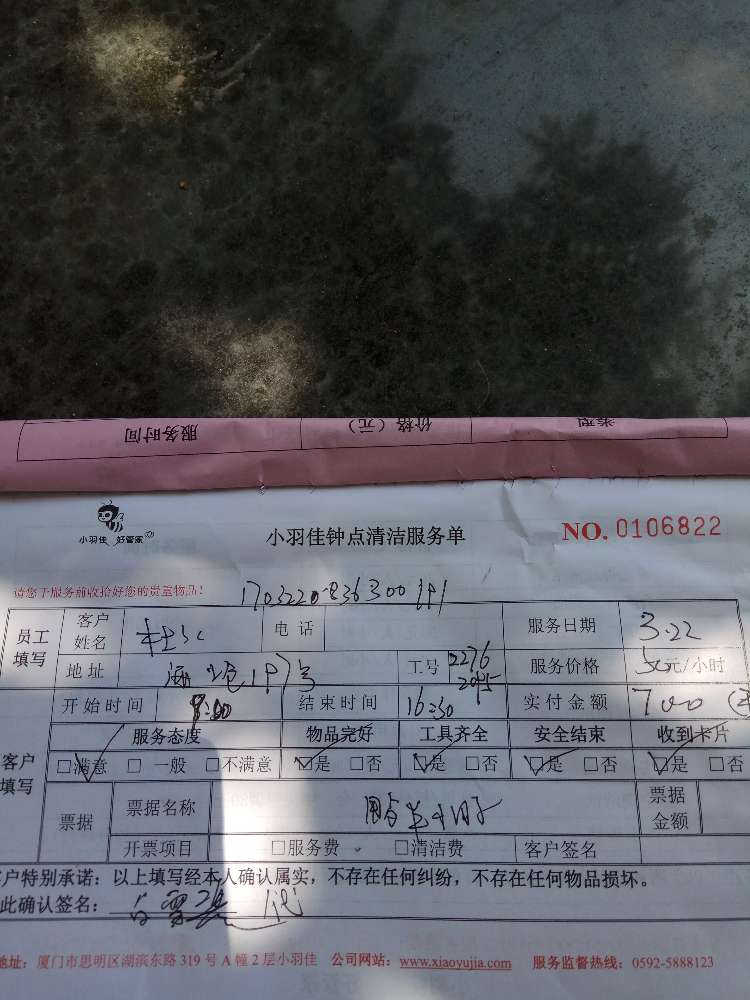 服务时间 价格（元） 类型
小羽佳 好管家
小羽佳钟点清洁服务单
NO. 0106822
请您于服务前收拾好您的贵重物品！
员工填写 客户姓名 电话 服务日期 3.22
地址 工号 2276 2095 服务价格 50元/小时
开始时间 8:00 结束时间 16:30 实付金额 700
客户填写 服务态度 物品完好 工具齐全 安全结束 收到卡片
□满意 □一般 □不满意 □是 □否 □是 □否 □是 □否 □是 □否
票据 票据名称 票据金额
开票项目 □服务费 □清洁费 客户签名
客户特别承诺：以上填写经本人确认属实，不存在任何纠纷，不存在任何物品损坏。
此确认签名：
地址：厦门市思明区湖滨东路 319 号 A 幢 2 层小羽佳 公司网站：www.xiaoyujia.com 服务监督热线：0592-5888123